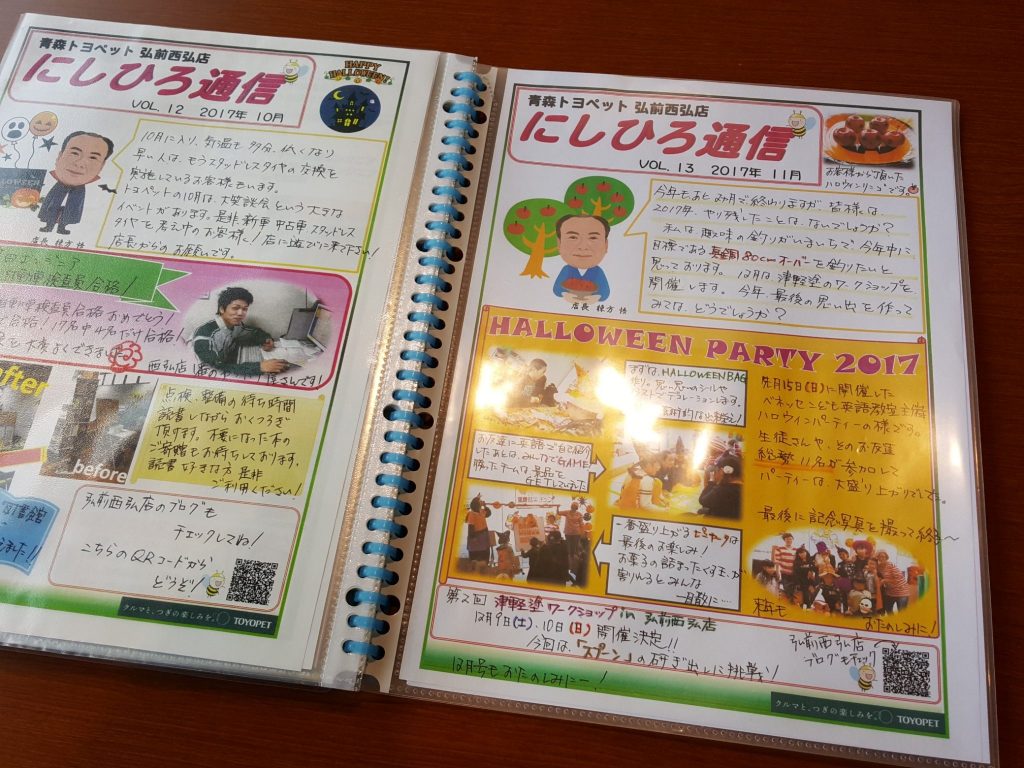 青森トヨペット 弘前西弘店
にしひろ通信
VOL. 12 2017年 10月
HAPPY
HALLOWEEN!
10月に入り、気温も 多分、低くなり
早い人は、もうスタッドレスタイヤの交換を
実施しているお客様もいます。
トヨペットの10月は、大笑談会という大きな
イベントがあります。是非、新車 中古車 スタッドレス
タイヤを お考え中のお客様に! 店に遊びに来て下さい!
店長からの お願いです。
検査員合格!
合格おめでとう!
合格! 17名中4名だけ合格!
西弘店
after
before
点検、整備の待ち時間
読書しながら おくつろぎ
頂けます。不様になった本の
ご寄贈もお待ちしております。
読書好きな方 是非
ご利用ください!
弘前西弘店のブログも
チェックしてね!
こちらのQRコードから
どうぞ!
クルマと、つぎの楽しみを。
TOYOPET
青森トヨペット 弘前西弘店
にしひろ通信
VOL. 13 2017年 11月
お客様から頂いた
ハロウィンリンゴです。
今年もあと 2ヵ月で終わりますが、皆様は、
2017年、やり残したことは、ないでしょうか?
私は、趣味の釣りがいまいちで、今年中に
目標である 真鯛80cmオーバーを釣りたいと
思っております。12月は、津軽塗のワークショップを
開催します。今年、最後の思い出を作って
みては、どうでしょうか?
HALLOWEEN PARTY 2017
まずは、HALLOWEENBAG
作り。思い思いのシールや
先月15日(日)に開催した
ベネッセこども英語教室主催
ハロウィンパーティーの様子です。
生徒さんや、そのお友達
総勢 11名が参加して
パーティーは、大盛り上がりでした。
お友達に英語でご自己紹介
したあとは、みんなでGAME
勝ったチームは景品を
GETしていました
一番盛り上がるピニャータは
最後のお楽しみ!
お菓子の詰まったくす玉が
割れるとみんな
一目散に....
最後に記念写真を撮って終了~
おたのしみに!
第2回 津軽塗ワークショップin 弘前西弘店
12月9日(土)、10日(日)開催決定!!
今回は、「スプーン」の研ぎ出しに挑戦!
12月号もおたのしみにー!
弘前西弘店
ブログもチェック
クルマと、つぎの楽しみを。
TOYOPET